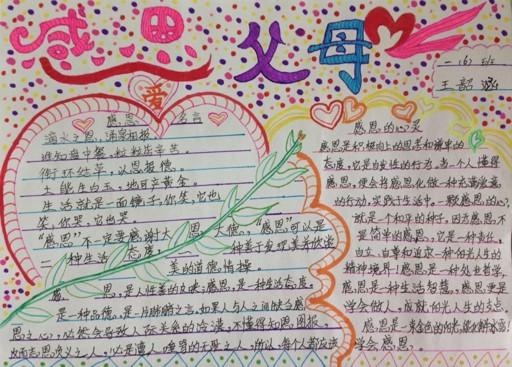 感恩父母
一(6)班
王韶涵
爱
感恩名言
滴水之恩,涌泉相报。
谁知盘中餐,粒粒皆辛苦。
衔环结草,以恩报德。
土能生白玉,地可出黄金。
生活就是一面镜子,你笑,它也
笑,你哭,它也哭。
"感恩"不一定要感谢大恩大德,"感恩"可以是
一种生活态度,一种善于发现美并欣赏
美的道德情操。
感恩,是人性善的反映;感恩,是一种生活态度,
是一种品德,是一片肺腑之言。如果人与人之间缺乏感
恩之心,必然会导致人际关系的冷漠,不懂得知恩图报,
反而忘恩负义之人,必是遭人唾骂的无耻之人,所以,每个人都应该
学会感恩。
感恩的心灵
感恩是积极向上的思考和谦卑的
态度,它是自发性的行为。当一个人懂得
感恩,便会将感恩化做一种充满爱意
的行动,实践于生活中。一颗感恩的心,
就是一个和平的种子,因为感恩不
是简单的感恩,它是一种责任、
自立、自尊和追求一种阳光人生的
精神境界!感恩是一种处世哲学,
感恩是一种生活智慧,感恩更是
学会做人,成就阳光人生的支点。
感恩是一束金色的阳光,能融解冰寒!